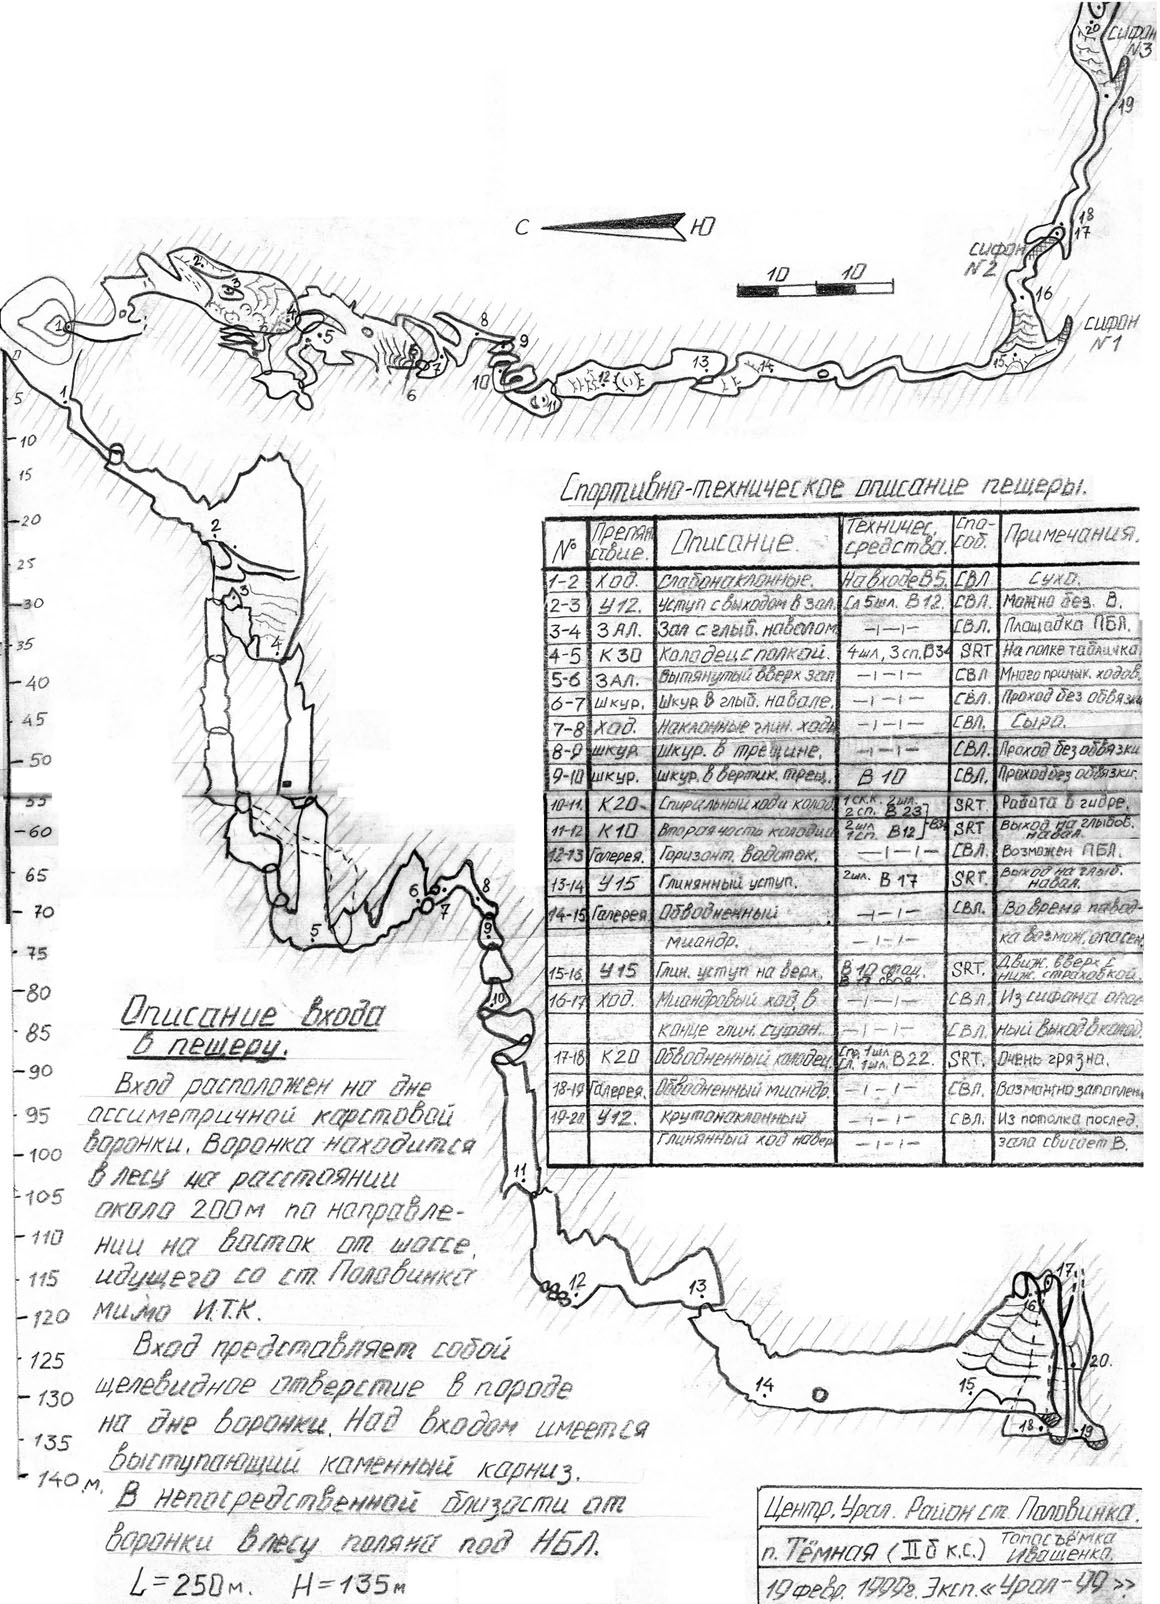 20
СИФОН
N3
19
18
17
С
Ю
СИФОН
N2
10 10
16
СИФОН
N1
15
1
2
2
3
4
5
6
6
7
8
9
10
11
12
13
14
0
5
10
15
20
25
30
35
40
45
50
55
60
65
70
75
80
85
90
95
100
105
110
115
120
125
130
135
140 м.
1
2
3
4
5
6
7
8
9
10
11
12
13
14
15
16
17
18
19
20.
Спортивно-техническое описание пещеры.
№ Препят ствие. Описание. Техничес. средства. Спо-соб. Примечания.
1-2 Ход. Слабонаклонные. На входе В5. СВЛ Сухо.
2-3 У12. Уступ с выходом в зал. Сл 5шл. В12. СВЛ. Можно без В.
3-4 ЗАЛ. Зал с глыб. навалом —ı—ı— СВЛ. Площадка ПБЛ.
4-5 К30 Колодец с полкой. 4шл, 3сп. В34 SRT На полке табличка
5-6 ЗАЛ. Вытянутый вверх зал —ı—ı— СВЛ Много примык. ходов.
6-7 шкур. Шкур в глыб. навале. —ı—ı— СВЛ. Проход без обвязки
7-8 Ход. Наклонные глин. ходы —ı—ı— СВЛ. Сыро.
8-9 шкур. шкур. в трещине. —ı—ı— СВЛ. Проход без обвязки
9-10 шкур. шкур. в вертик. трещ. В10 СВЛ. Проход без обвязки.
10-11. К20 Спиральный ход и колод. 1 ск.к. 2шл. 2сп. В23 SRT. Работа в гидре.
11-12 К10 Вторая часть колодца 2шл 1сп. В12 SRT Выход на глыбов. навал.
12-13 Галерея. Горизонт. водоток. —ı—ı— СВЛ. Возможен ПБЛ.
13-14 У15 Глинянный уступ. 2шл. В17 SRT. Выход на глыб. навал.
14-15 Галерея Обводненный —ı—ı— СВЛ. Во время павод-
миандр. —ı—ı— ка возмож. опасен.
15-16. У15 Глин. уступ на верх. SRT. Движ. вверх с ниж. страховкой.
16-17 Ход. Миандровый ход, в —ı—ı— СВЛ. Из сифона опас
конце глин. сифон. —ı—ı— СВЛ. ный выход в колод.
17-18 К20 Обводненный колодец 1шл Сл. 1шл. В22. SRT. Очень грязно.
18-19 Галерея. Обводненный миандр. —ı—ı— СВЛ. Возможно затоплен
19-20. У12. Крутонаклонный —ı—ı— СВЛ. Из потолка послед.
глинянный ход навер —ı—ı— зала свисает В.
Описание входа
в пещеру.
Вход расположен на дне
ассиметричной карстовой
воронки. Воронка находится
в лесу на расстоянии
около 200м по направле-
нии на восток от шоссе,
идущего со ст. Половинка
мимо И.Т.К.
Вход представляет собой
щелевидное отверстие в породе
на дне воронки. Над входом имеется
выступающий каменный карниз.
В непосредственной близости от
воронки в лесу поляна под НБЛ.
L=250м. H=135м
Центр. Урал. Район ст. Половинка.
п. Тёмная (IIб к.с.) Топосъёмка Иващенко.
19 февр. 1999г. Эксп. «Урал-99»